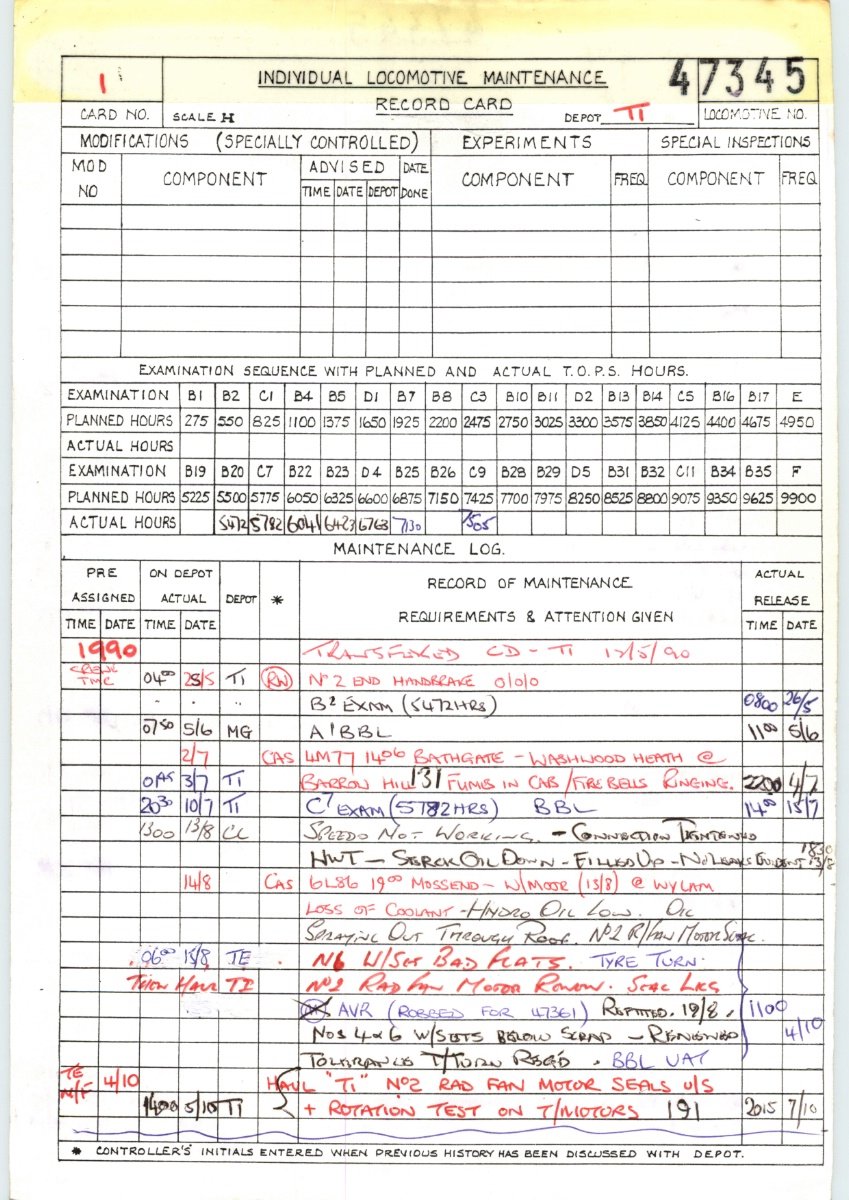 1 INDIVIDUAL LOCOMOTIVE MAINTENANCE 47345
RECORD CARD
CARD NO. SCALE H DEPOT TI LOCOMOTIVE NO.
MODIFICATIONS (SPECIALLY CONTROLLED) EXPERIMENTS SPECIAL INSPECTIONS
MOD NO COMPONENT ADVISED DATE DONE COMPONENT FREQ COMPONENT FREQ
TIME DATE DEPOT
EXAMINATION SEQUENCE WITH PLANNED AND ACTUAL T.O.P.S. HOURS.
EXAMINATION B1 B2 C1 B4 B5 D1 B7 B8 C3 B10 B11 D2 B13 B14 C5 B16 B17 E
PLANNED HOURS 275 550 825 1100 1375 1650 1925 2200 2475 2750 3025 3300 3575 3850 4125 4400 4675 4950
ACTUAL HOURS
EXAMINATION B19 B20 C7 B22 B23 D4 B25 B26 C9 B28 B29 D5 B31 B32 C11 B34 B35 F
PLANNED HOURS 5225 5500 5775 6050 6325 6600 6875 7150 7425 7700 7975 8250 8525 8800 9075 9350 9625 9900
ACTUAL HOURS 5472 5782 6041 6423 6763 7130 7505
MAINTENANCE LOG.
PRE ASSIGNED ON DEPOT ACTUAL DEPOT * RECORD OF MAINTENANCE ACTUAL RELEASE
REQUIREMENTS & ATTENTION GIVEN
TIME DATE TIME DATE TIME DATE
1990 TRANSFERED CD - TI 13/5/90
0400 25/5 TI RW Nº2 END HANDBRAKE 0/0/0
" " B2 EXAM (5472HRS) 0800 26/5
0750 5/6 MG A'BBL 1100 5/6
2/7 CAS 4M77 1406 BATHGATE - WASHWOOD HEATH @
3/7 TI BARROW HILL 131 FUMES IN CAB / FIRE BELLS RINGING. 2200 4/7
2030 10/7 TI C7 EXAM (5782HRS) BBL 1400 15/7
1300 13/8 CL SPEEDO NOT WORKING. - CONNECTION TIGHTENED
HWT - SERCK OIL DOWN - FILLED UP - NO LEAKS EVIDENT 1830 13/8
14/8 CAS 6L86 1900 MOSSEND - N/MOOR (13/8) @ WYLAM
LOSS OF COOLANT - HYDRO OIL LOW. OIL
SPRAYING OUT THROUGH ROOF. Nº2 R/FAN MOTOR SEAL.
0600 15/8 TE N6 W/SET BAD FLATS. TYRE TURN.
THEN HAUL TI Nº2 RAD FAN MOTOR RENEW. SEAL LKG
AVR (ROBBED FOR 47361) REFITTED. 19/8. 1100
NOS 4 & 6 W/SETS BELOW SCRAP - RENEWED 4/10
TOLERANCE T/TURN REQ'D. BBL VAT
TE N/F 4/10 HAUL "TI" Nº2 RAD FAN MOTOR SEALS U/S
1400 5/10 TI + ROTATION TEST ON T/MOTORS 191 2015 7/10
* CONTROLLER'S INITIALS ENTERED WHEN PREVIOUS HISTORY HAS BEEN DISCUSSED WITH DEPOT.